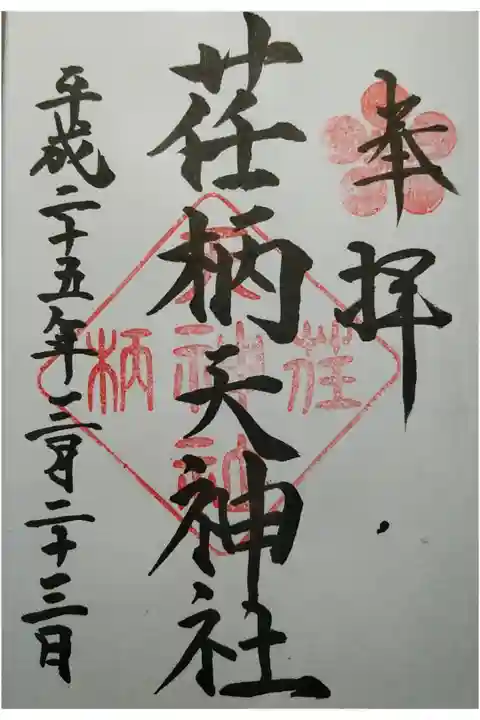 奉拝
荏柄天神社
平成二十五年三月二十三日
荏
柄
天神社